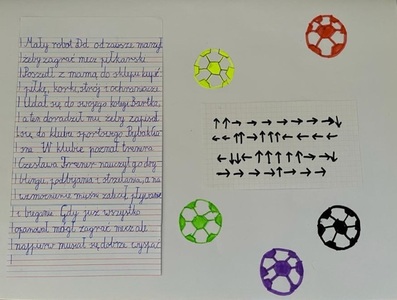 Mały robot Od zawsze marzył
żeby zagrać mecz piłkarski
Poszedł z mamą do sklepu kupić
piłkę, korki, strój i ochraniacze
Udał się do swojego kolegi Bartka,
a ten doradzał mu żeby zapisał
się do klubu sportowego
W klubie poznał trenera
Czesława Trener nauczył go dry-
blingu, podbijania i strzelania, a na
wzmocnienie mięśni zalecił pływanie
i bieganie. Gdy już wszystko
opanował mógł zagrać mecz ale
najpierw musiał się dobrze wyspać
↑↑→→→→→→→→↓
←←↑↑→↑↑↑←←←←
←↓↓←↑↑↑↑↑→→↓
→→→→→↑→→→